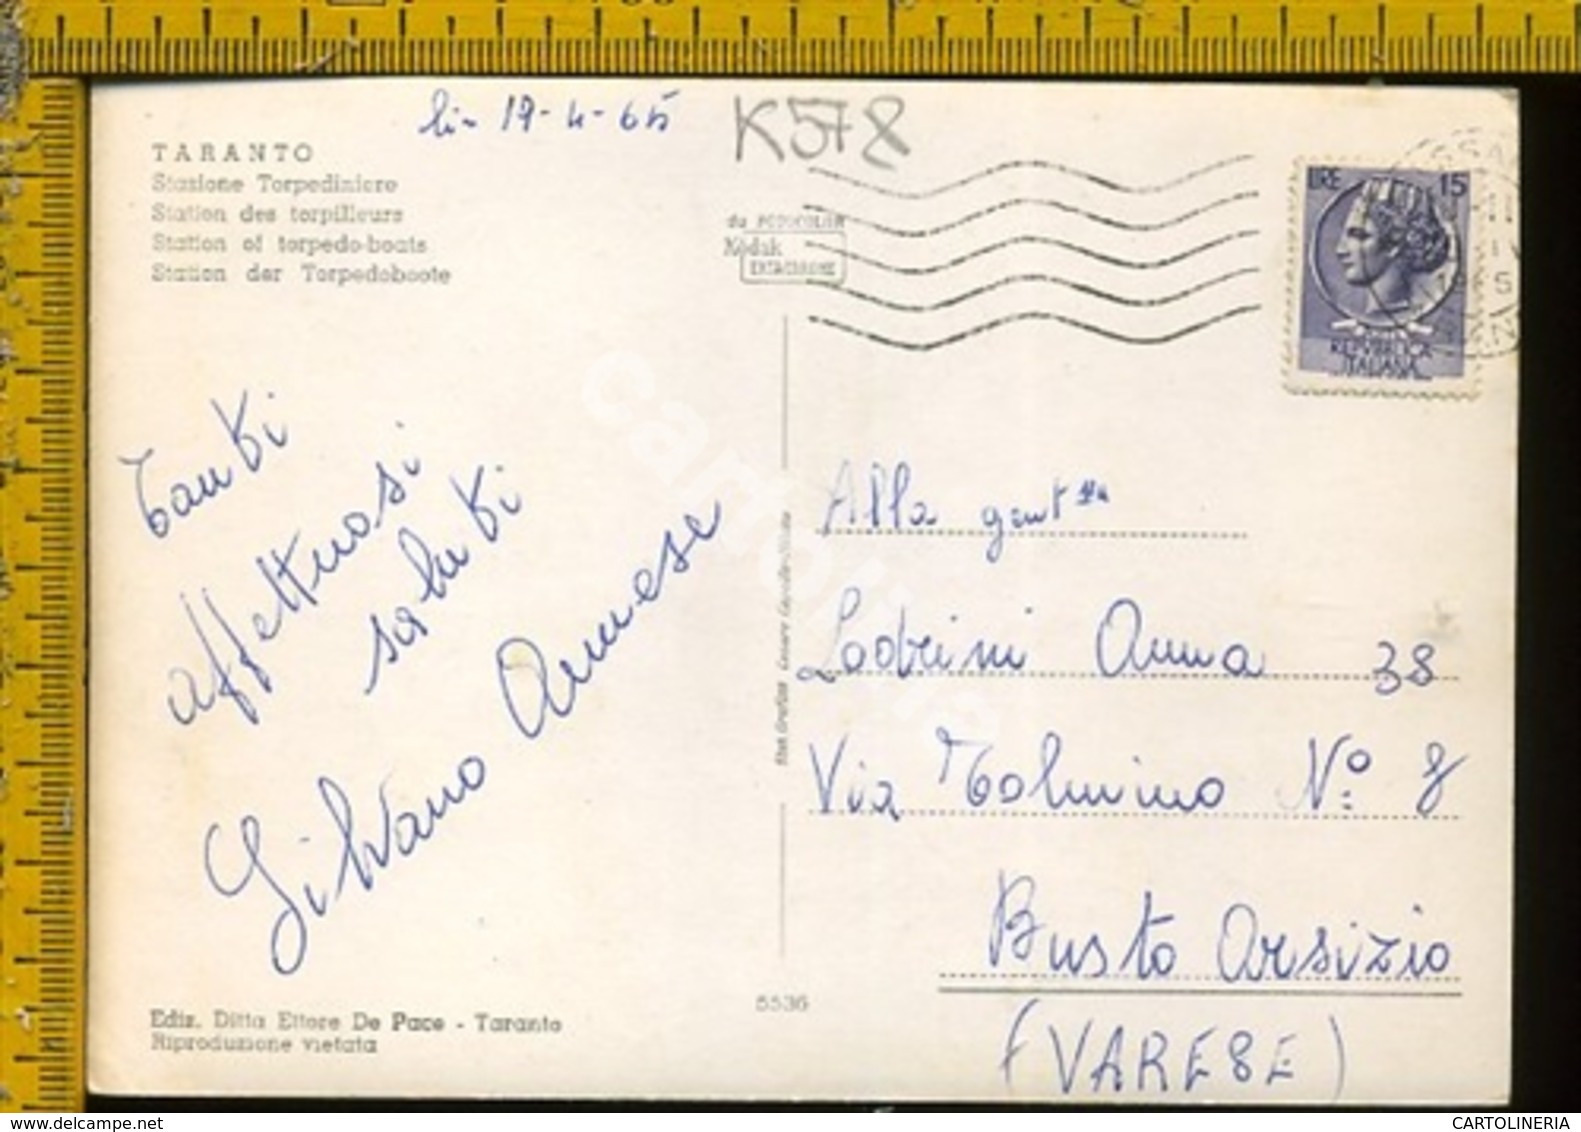 li- 19-4-65
K578
TARANTO
Stazione Torpediniere
Station des torpilleurs
Station of torpedo-boats
Station der Torpedoboote
Kodak
EKTACHROME
LIRE 15
REPVBBLICA
ITALIANA
Tanti
affettuosi
saluti
Silvano Annese
Alla gent.ma
Lodrini Anna 38
Via Tolmino N° 8
Busto Arsizio
(VARESE)
5536
Ediz. Ditta Ettore De Pace - Taranto
Riproduzione vietata
cartolin
CARTOLINERIA